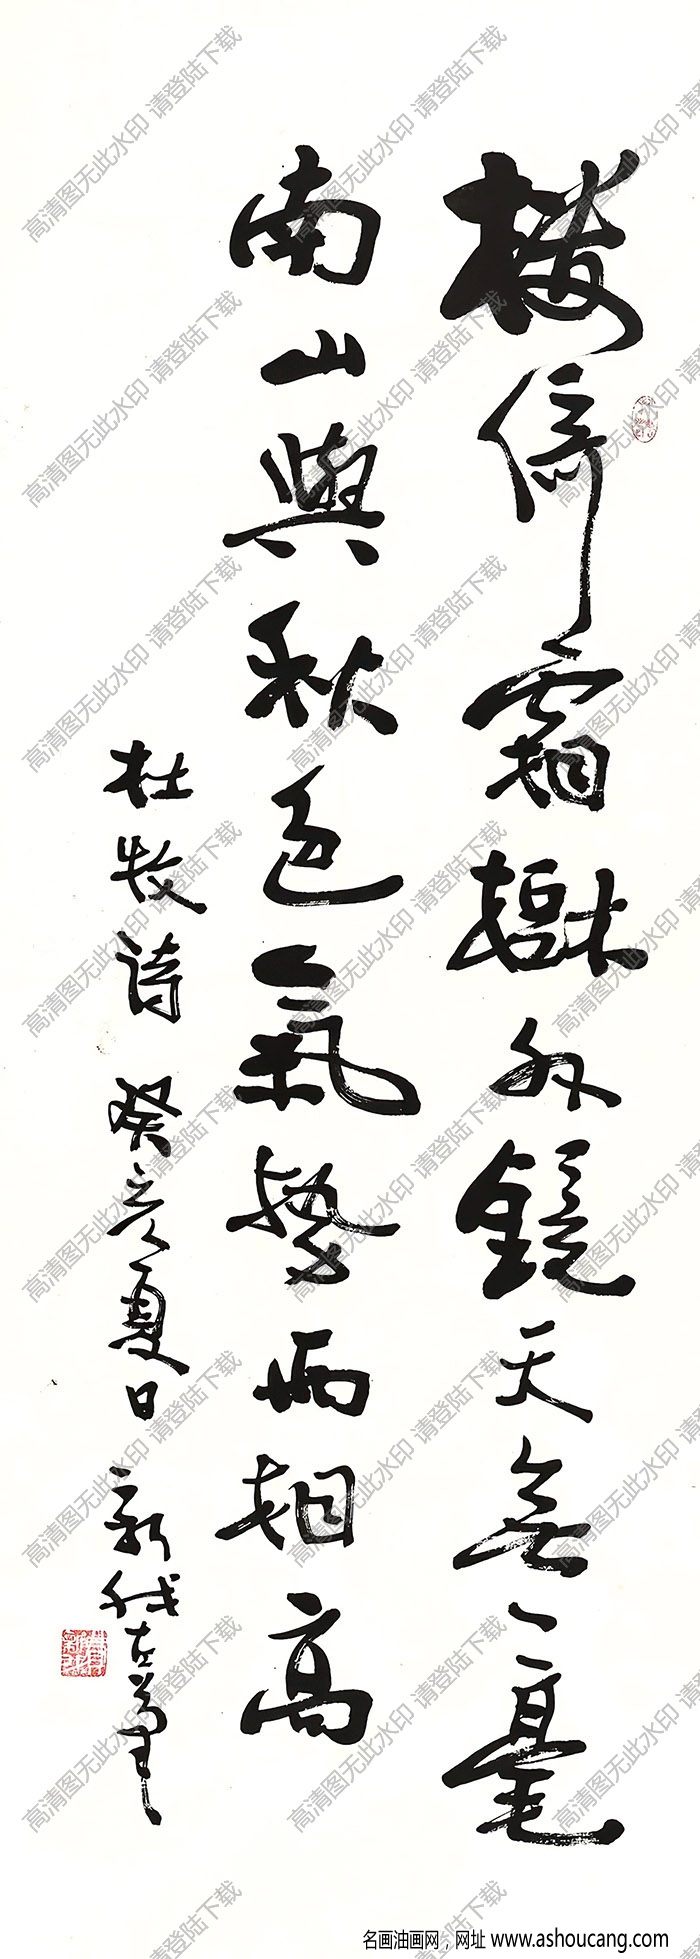 楼倚霜樹外鏡天無一毫
南山與秋色氣勢兩相高
杜牧詩 癸亥夏日 新我左筆
高清图无此水印 请登陆下载
名画油画网，网址 www.ashoucang.com